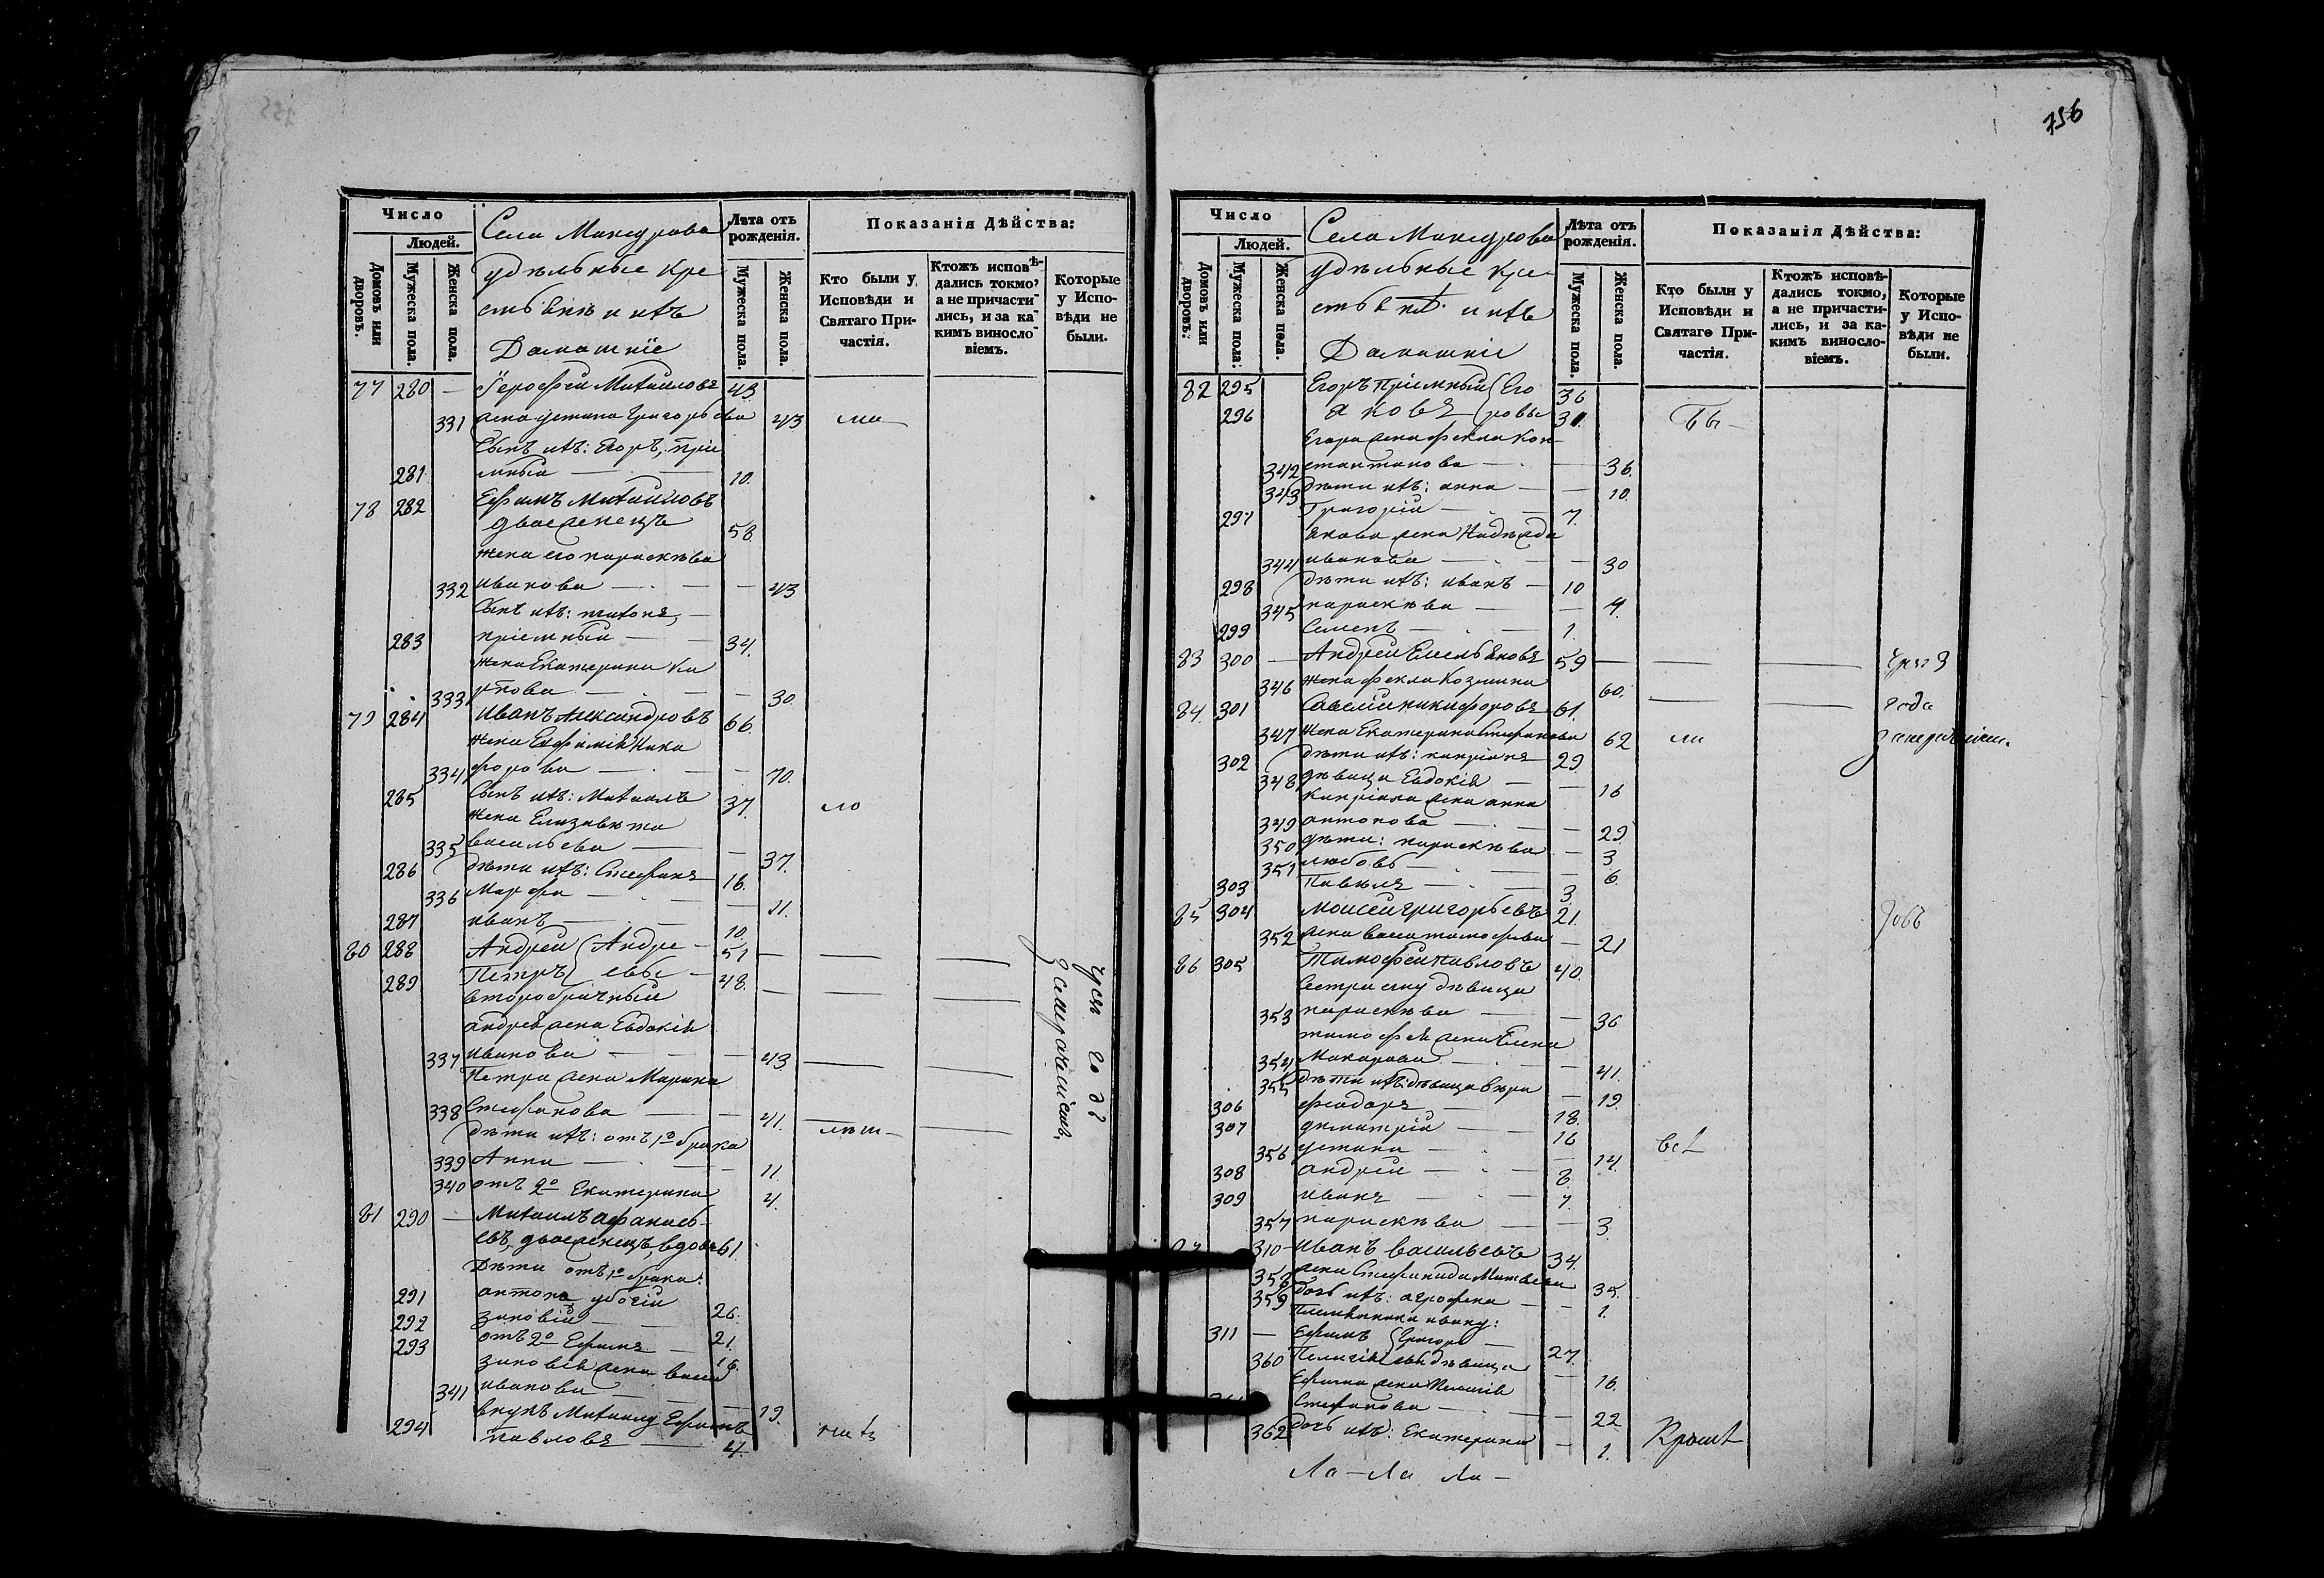 756
Число
Людей.
Домовъ или дворовъ.
Мужеска пола.
Женска пола.
Села Македрова
удѣльные кре
Домашніе
Лѣта отъ рожденія.
Мужеска пола.
Женска пола.
Показанія Дѣйства:
Кто были у Исповѣди и Святаго При-частія.
Ктожъ исповѣ-дались токмо, а не причасти-лись, и за ка-кимъ винословіемъ.
Которые у Испо-вѣди не были.
77 280 — Іерофей Михайловъ 43
331 жена устина Григорьева 43
Сынъ ихъ: Егоръ, пріе
281 мный — 10.
78 282 Ефимъ Михайловъ
двоеженецъ 58.
жена его параскѣва
332 иванова — 43
Сынъ ихъ:
283 пріемный — 34.
жена Екатерина Ка
333 рпова — 30.
79 284 Иванъ Александровъ 66.
жена Евфимія Ники
334 форова — 70.
285 Сынъ ихъ: Михаилъ 37.
жена Елизавета
335 васильева — 37.
286 дѣти ихъ: Стефанъ 16.
336 Марфа — 11.
287 иванъ — 10.
80 288 Андрей Андре 51
289 Петръ евы 48.
второбрачный
андрея жена Евдокія
337 иванова — 43
Петра жена Марина
338 Стефанова — 41.
дѣти ихъ: отъ 1го брака
339 Анна — 11.
340 отъ 2го Екатерина 4.
81 290 — Михаилъ афанась-
евъ, двоеженецъ, вдовъ 61.
Дѣти отъ 1го брака:
291 антонъ убогій 26.
292 зиновій — 21.
293 отъ 2го Ефимъ — 16.
зиновія жена васса
341 иванова — 19.
внукъ Михаилу Ефимъ
294 павловъ — 4.
Число
Людей.
Домовъ или дворовъ.
Мужеска пола.
Женска пола.
Села Македрова
удѣльные кре-
Домашніе
Лѣта отъ рожденія.
Мужеска пола.
Женска пола.
Показанія Дѣйства:
Кто были у Исповѣди и Святаго При-частія.
Ктожъ исповѣ-дались токмо, а не причасти-лись, и за ка-кимъ винословіемъ.
Которые у Испо-вѣди не были.
82 295 Егоръ пріемный Его 36
296 яковъ ровы 30.
Егора жена фекла Кон
342 стантинова — 36.
343 дѣти ихъ: анна — 10.
297 Григорій — 7.
якова жена Надежда
344 иванова — 30
298 дѣти ихъ: иванъ — 10
345 параскѣва — 4.
299 Семенъ — 1.
83 300 — Андрей Емельяновъ 59
346 жена фекла Козмина 60.
84 301 Савелій никифоровъ 61.
347 жена Екатерина Стефанова 62
302 дѣти ихъ: кипріанъ 29
348 дѣвица Евдокія — 16
Кипріана жена анна
349 антонова — 29.
350 дѣти: параскѣва — 3
351 любовь — 6.
303 Павелъ — 3.
85 304 Моисей григорьевъ 21.
352 жена васса тимофѣева — 21
86 305 Тимофей павловъ 40.
Сестра ему дѣвица
353 параскѣва — 36
тимофея жена Елена
354 Макарова — 41.
355 дѣти ихъ: дѣвица вѣра — 19.
306 феодоръ — 18.
307 димитрій — 16
356 устина — 14.
308 андрей — 8.
309 иванъ — 7.
357 параскѣва — 3.
310 Иванъ васильевъ 34.
358 жена Стефанида Матвеева 35.
359 дочь ихъ: агрофена — 1.
Племянники ивану:
311 — Ефимъ Григорь — 27.
360 Пелагія евы дѣвица 16.
Ефима жена Пелагія
Стефанова — 22
362 дочь ихъ: Екатерина — 1.